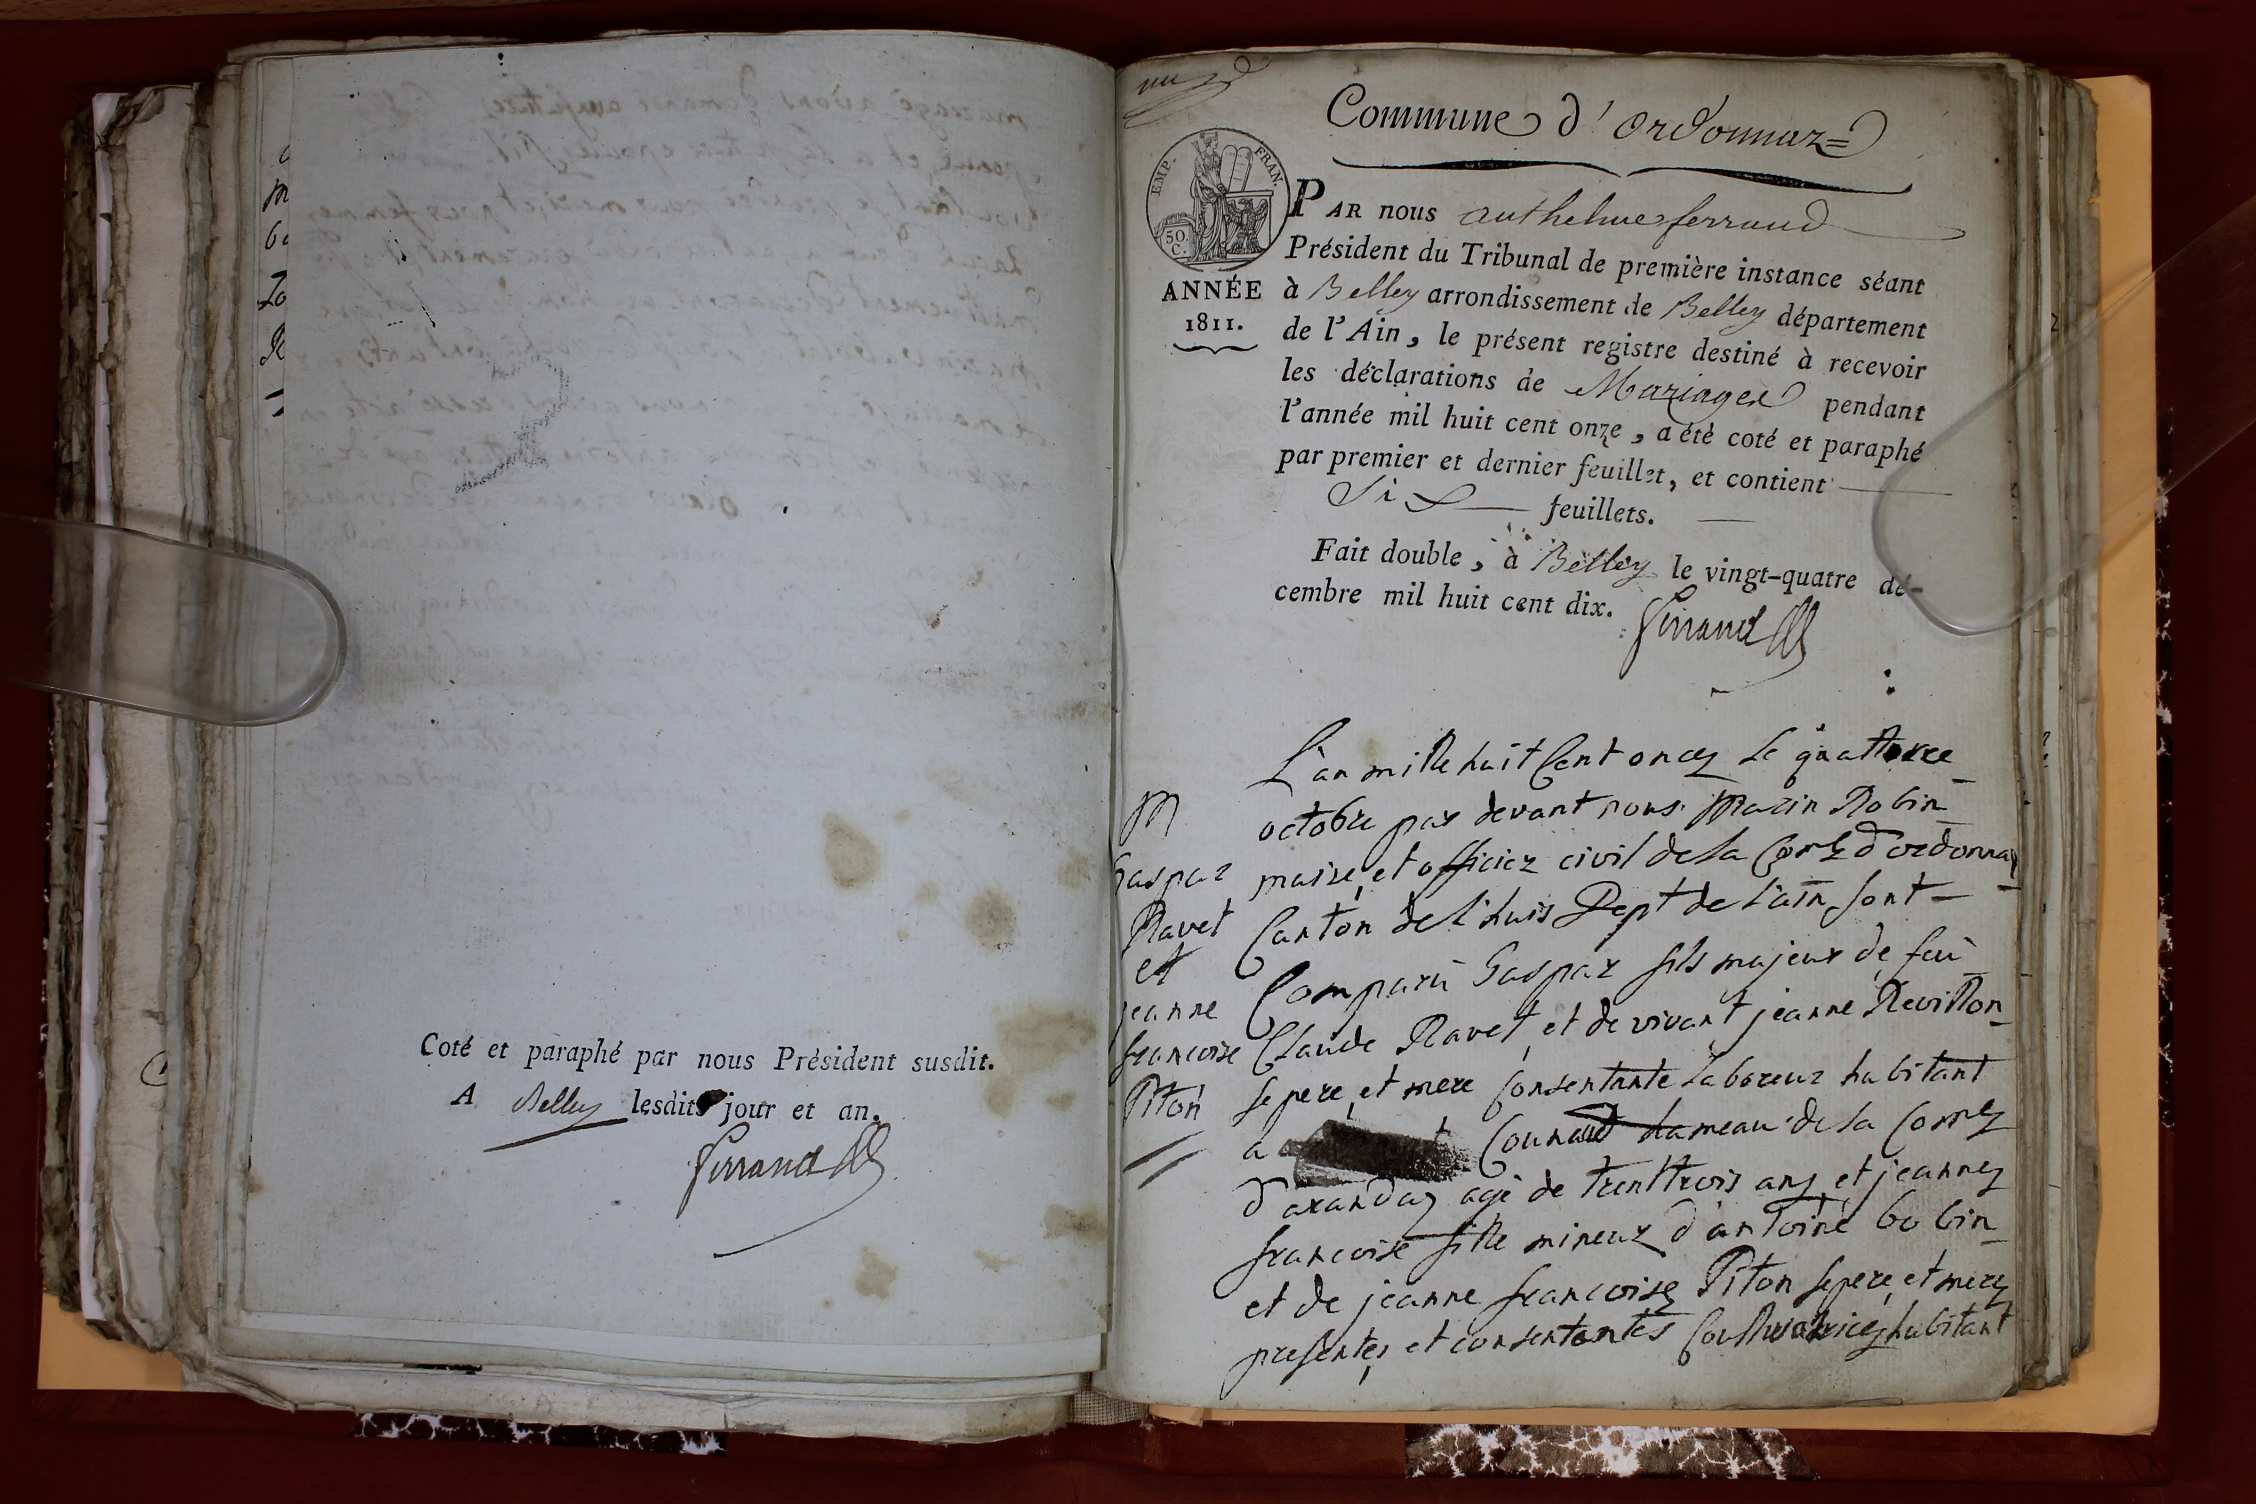 Coté et paraphé par nous Président susdit.
A Belley lesdits jour et an.
Ferrand
un
Commune d'ordonnaz
EMP. FRAN.
50. C.
ANNÉE
1811.
PAR nous anthelme ferrand
Président du Tribunal de première instance séant
à Belley arrondissement de Belley département
de l'Ain, le présent registre destiné à recevoir
les déclarations de Mariages pendant
l'année mil huit cent onze, a été coté et paraphé
par premier et dernier feuillet, et contient
Six feuillets.
Fait double, à Belley le vingt-quatre dé-
cembre mil huit cent dix.
Ferrand
M
Gaspar
Ravet
et
jeanne
francoise
Piton
L'an mille huit Cent onze le quattorze
octobre par devant nous Marin Robin
maire et officier civil de la Comne d'ordonnaz
Canton de l'huis Dept de L'ain sont
Comparu Gaspar fils majeur de feu
Claude Ravet et de vivant jeanne Revillon
se pere et mere consentante laboreur habitant
a Counand hameau de la Comne
d'arandaz agé de trenttrois ans et jeanne
francoise fille mineur d'antoine bobin
et de jeanne francoise Piton se pere et mere
presentes et consentantes Coultivatrice habitant